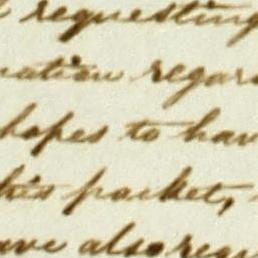 requesting
nation regar
hopes to hav
his pocket,
ave also requ